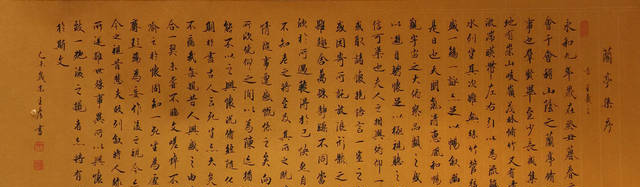 蘭亭集序
晉 王羲之
永和九年歲在癸丑暮春
會于會稽山陰之蘭亭脩
事也群賢畢至少長咸集
地有崇山峻嶺茂林脩竹又有
流激湍映帶左右引以為流觴
列坐其次雖無絲竹管絃
盛一觴一詠亦足以暢敘幽
是日也天朗氣清惠風和暢
觀宇宙之大俯察品類之盛
以遊目騁懷足以極視聽之
信可樂也夫人之相與俯仰一
或取諸懷抱晤言一室之
或因寄所託放浪形骸之
雖趣舍萬殊靜躁不同
欣於所遇暫得於己快然自
不知老之將至及其所之既
情隨事遷感慨係之矣向
所欣俛仰之間以為陳迹猶
能不以之興懷況脩短隨化
期於盡古人云死生亦大矣
不痛哉每攬昔人興感之由
合一契未嘗不臨文嗟悼不
喻之於懷固知一死生為虛
齊彭殤為妄作後之視今亦
今之視昔悲夫故列敘時人
所述雖世殊事異所以興懷
致一也後之攬者亦將有
於斯文
書